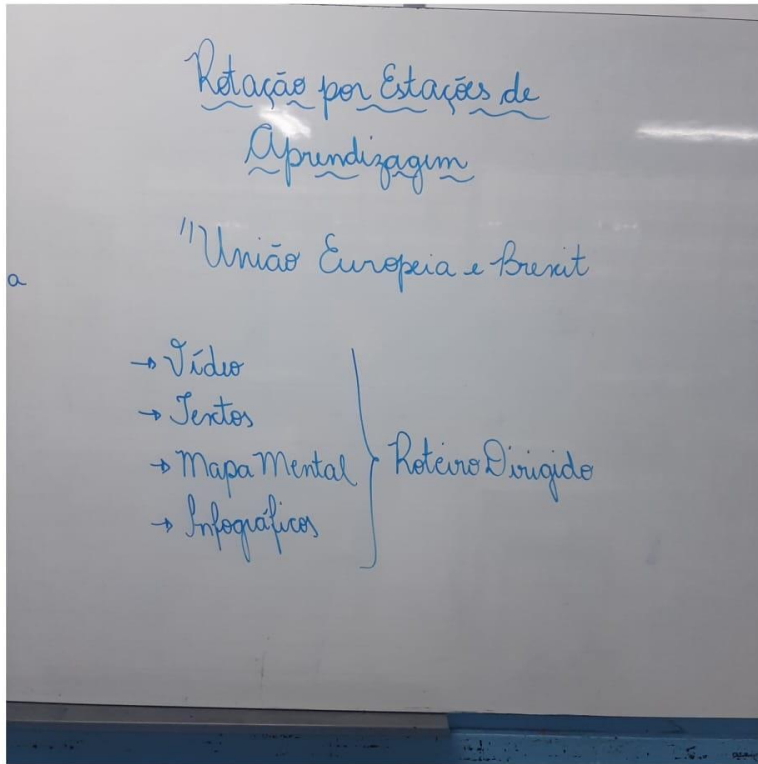 Rotação por Estações de
Aprendizagem
"União Europeia e Brexit
a
→ Vídeo
→ Textos
→ Mapa Mental
→ Infográficos
Roteiro Dirigido